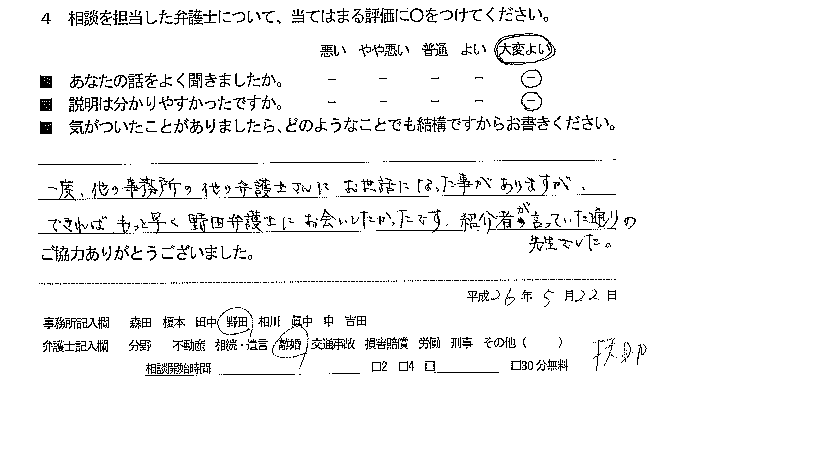 4 相談を担当した弁護士について、当てはまる評価に○をつけてください。
悪い やや悪い 普通 よい 大変よい
■ あなたの話をよく聞きましたか。 － － － － －
■ 説明は分かりやすかったですか。 － － － － －
■ 気がついたことがありましたら、どのようなことでも結構ですからお書きください。
一度、他の事務所の他の弁護士さんにお世話になった事がありますが、
できればもっと早く野田弁護士にお会いしたかったです。紹介者が言っていた通りの
先生でした。
ご協力ありがとうございました。
平成26年5月22日
事務所記入欄 森田 榎本 田中 野田 相川 眞中 中 吉田
弁護士記入欄 分野 不動産 相続・遺言 離婚 交通事故 損害賠償 労働 刑事 その他（ ）
相談開始時間 □2 □4 □ □30分無料